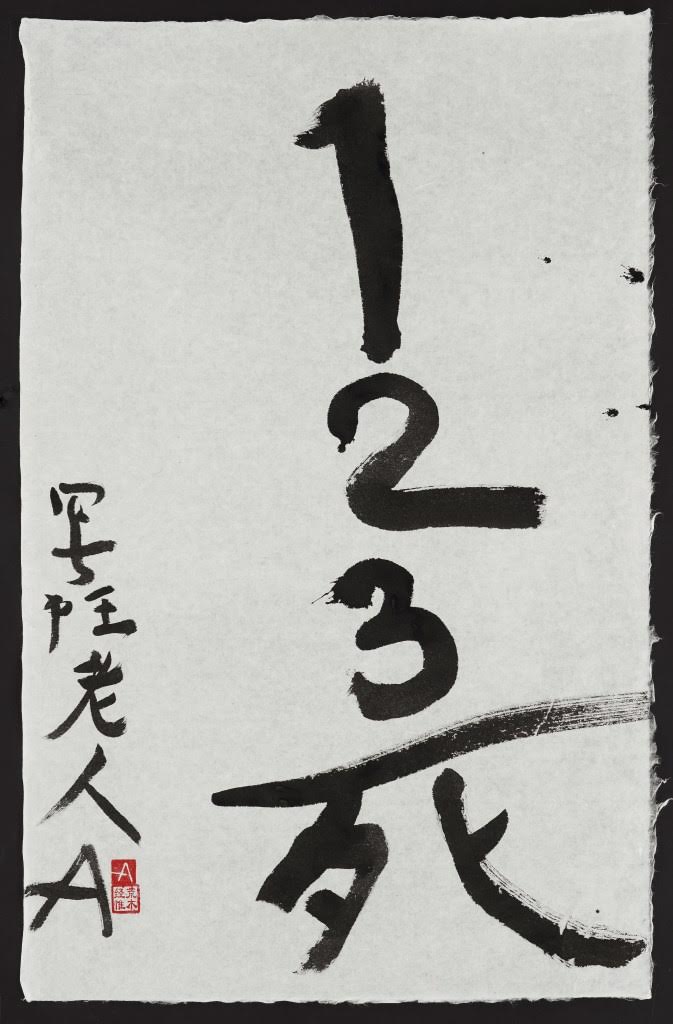 123死
写狂老人A
A
荒木
経惟